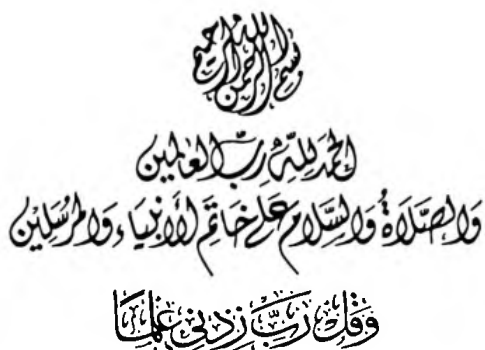 بسم الله الرحمن الرحيم
الحمد لله رب العالمين
والصلاة والسلام على خاتم الأنبياء والمرسلين
وقل رب زدني علما